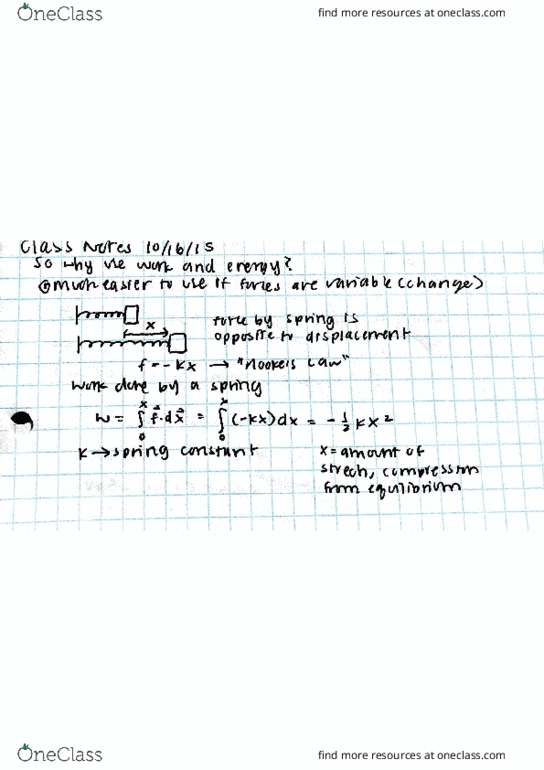 OneClass
find more resources at oneclass.com
Class Notes 10/16/15
So why use work and energy?
much easier to use if forces are variable (change)
x
force by spring is
opposite to displacement
f = -kx → "Hooke's Law"
work done by a spring
w = ∫₀ˣ f⃗·dx⃗ = ∫₀ˣ (-kx)dx = -½kx²
k → spring constant
x = amount of
strech, compression
from equilibrium
OneClass
find more resources at oneclass.com